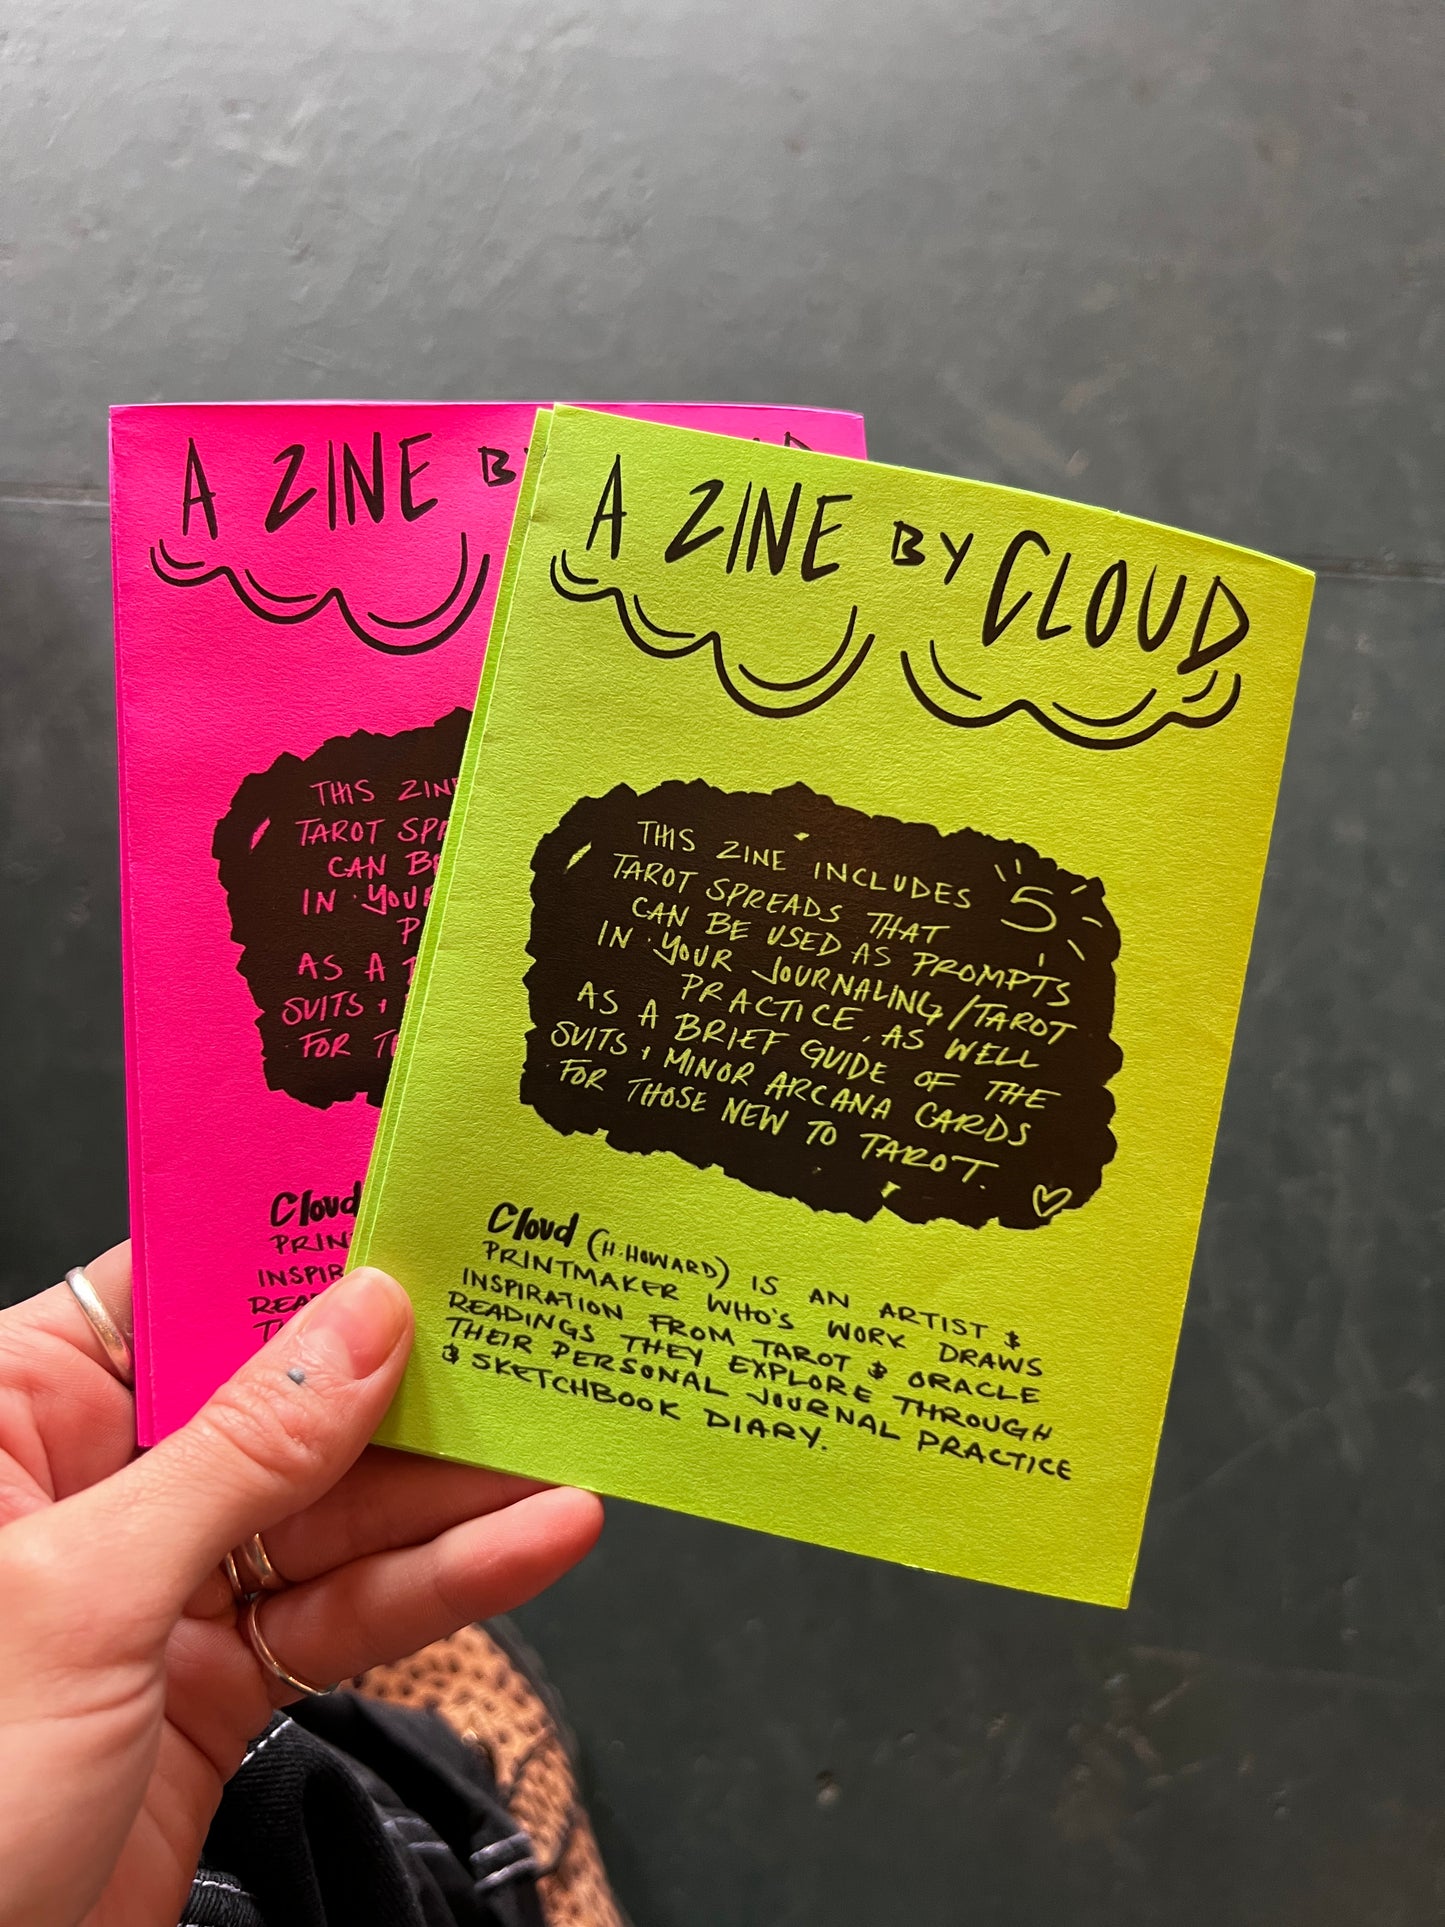 A ZINE
A ZINE BY CLOUD
THIS
TAROT
CAN
IN YOUR
AS A
SUITS +
FOR
Cloud
THIS ZINE INCLUDES 5
TAROT SPREADS THAT
CAN BE USED AS PROMPTS
IN YOUR JOURNALING/TAROT
PRACTICE, AS WELL
AS A BRIEF GUIDE OF THE
SUITS + MINOR ARCANA CARDS
FOR THOSE NEW TO TAROT.
Cloud (H.HOWARD) IS AN ARTIST &
PRINTMAKER WHO'S WORK DRAWS
INSPIRATION FROM TAROT & ORACLE
READINGS THEY EXPLORE THROUGH
THEIR PERSONAL JOURNAL PRACTICE
& SKETCHBOOK DIARY.